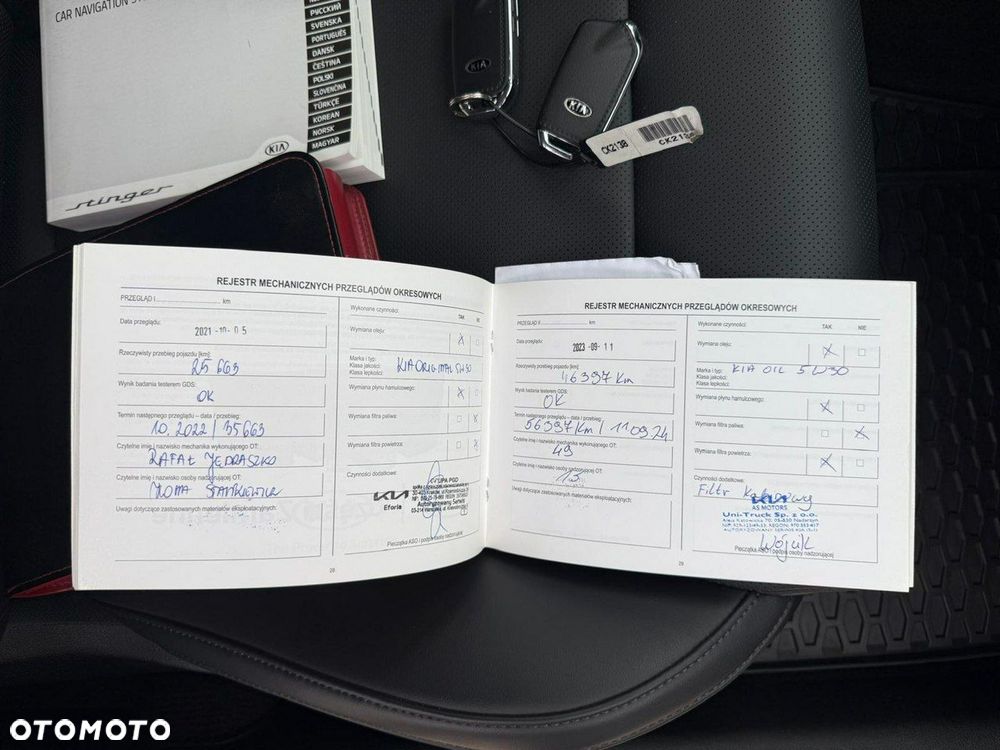 CAR NAVIGATION
РУССКИЙ
SVENSKA
PORTUGUÊS
DANSK
ČEŠTINA
POLSKI
SLOVENČINA
TÜRKÇE
KOREAN
NORSK
MAGYAR
KIA
stinger
KIA
KIA
CK2138
CK2138
REJESTR MECHANICZNYCH PRZEGLĄDÓW OKRESOWYCH
PRZEGLĄD I km
Data przeglądu:
2021-10-05
Rzeczywisty przebieg pojazdu [km]:
25 663
Wynik badania testerem GDS:
OK
Termin następnego przeglądu – data / przebieg:
10.2022 / 35663
Czytelne imię i nazwisko mechanika wykonującego OT:
RAFAŁ JĘDRASZKO
Czytelne imię i nazwisko osoby nadzorującej OT:
Uwagi dotyczące zastosowanych materiałów eksploatacyjnych:
Wykonane czynności:
TAK NIE
Wymiana oleju:
Marka i typ:
Klasa jakości:
Klasa lepkości:
KIA ORIGINAL 5W30
Wymiana płynu hamulcowego:
Wymiana filtra paliwa:
Wymiana filtra powietrza:
Czynności dodatkowe:
KIA
Eforia
GRUPA PGD
Autoryzowany Serwis
Pieczątka ASO i podpis osoby nadzorującej
28
REJESTR MECHANICZNYCH PRZEGLĄDÓW OKRESOWYCH
PRZEGLĄD II km
Data przeglądu:
2023-09-11
Rzeczywisty przebieg pojazdu [km]:
46397 km
Wynik badania testerem GDS:
OK
Termin następnego przeglądu – data / przebieg:
56397 km / 11 09 24
Czytelne imię i nazwisko mechanika wykonującego OT:
49
Czytelne imię i nazwisko osoby nadzorującej OT:
Uwagi dotyczące zastosowanych materiałów eksploatacyjnych:
Wykonane czynności:
TAK NIE
Wymiana oleju:
Marka i typ:
Klasa jakości:
Klasa lepkości:
KIA OIL 5W30
Wymiana płynu hamulcowego:
Wymiana filtra paliwa:
Wymiana filtra powietrza:
Czynności dodatkowe:
Filtr Kabinowy
KIA
AS MOTORS
Uni-Truck Sp. z o.o.
Pieczątka ASO i podpis osoby nadzorującej
29
OTOMOTO